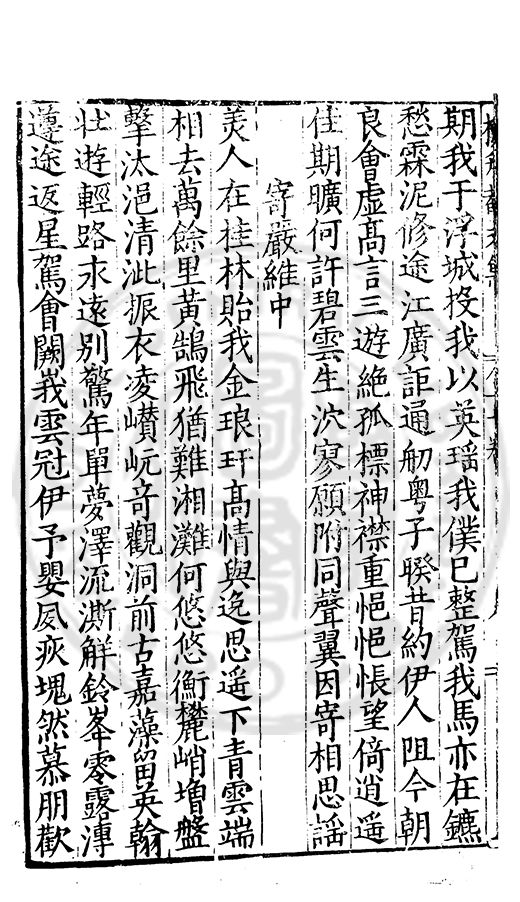 期我于浮城投我以英瑶我僕已整駕我馬亦在鑣
愁霖泥修途江廣詎通舠粤子睽昔約伊人阻今朝
良會虛高言三遊絶孤標神襟重悒悒悵望倚逍遥
佳期曠何許碧雲生泬寥願附同聲翼因寄相思謡
寄嚴維中
美人在桂林貽我金琅玕高情與逸思遥下青雲端
相去萬餘里黃鵠飛猶難湘灘何悠悠衡麓峭増盤
擊汰浥清泚振衣凌巑岏竒觀洞前古嘉藻留英翰
壯遊輕路永遠別驚年單夢澤流澌解鈴峯零露漙
遵途返星駕會闕我雲冠伊予嬰夙疢塊然慕朋歡